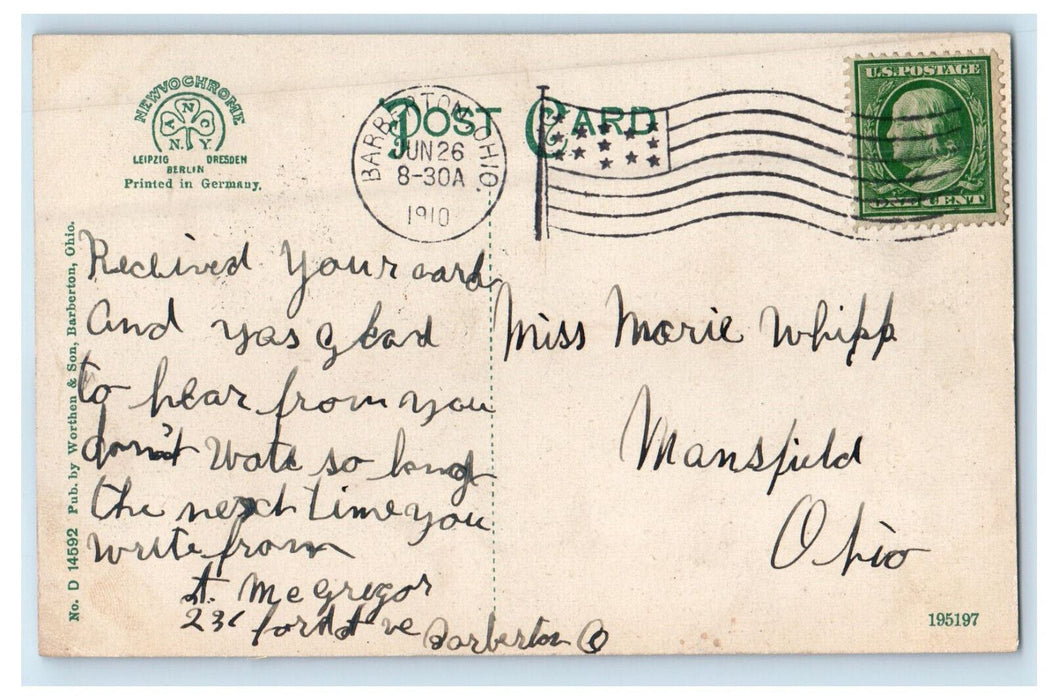 NEWVOCHROME
A N O
N. Y
LEIPZIG DRESDEN
BERLIN
Printed in Germany.
POST CARD
BARBERTON, OHIO.
JUN 26
8-30A
1910
U.S. POSTAGE
ONE CENT
No. D 14592 Pub. by Worthen & Son, Barberton, Ohio.
Received your card
and yas glad
to hear from you
don't wate so long
the next time you
write from
A. McGregor
231 ford Ave Barberton O
Miss Marie Whipp
Mansfield
Ohio
195197